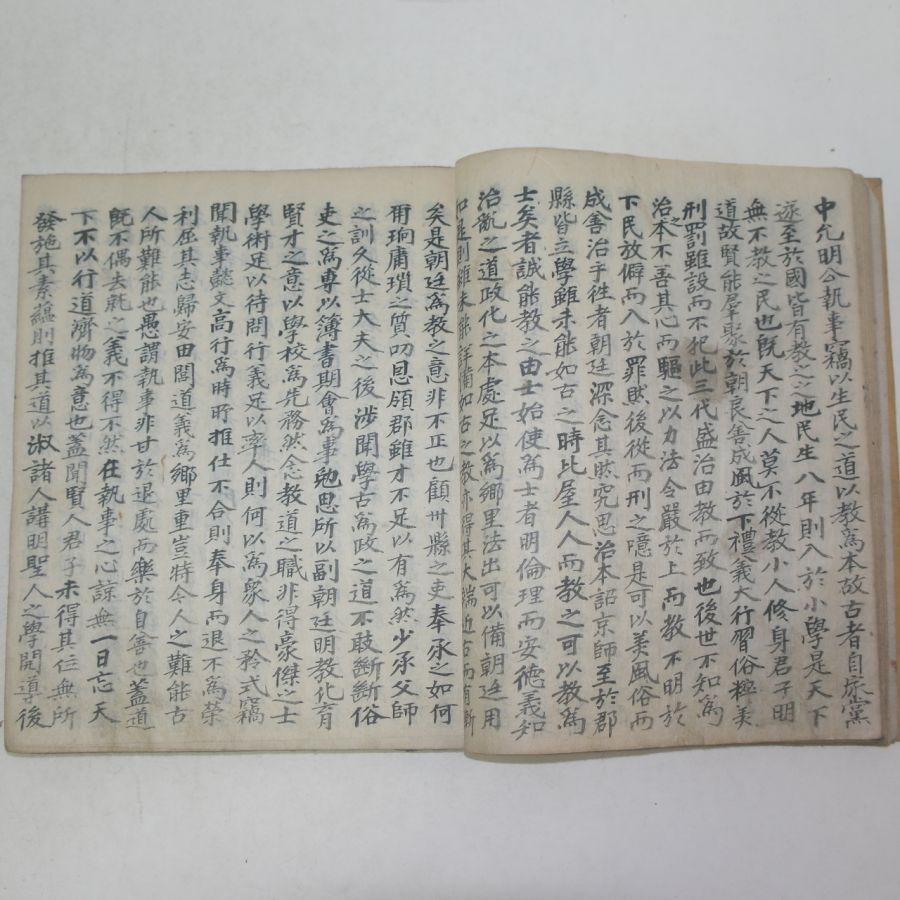 中允明公執事竊以生民之道以教爲本故古者自家黨
遂至於國皆有教之之地民生八年則入於小學是天下
無不教之民也旣天下之人莫不從教小人修身君子明
道故賢能羣聚於朝良善成風於下禮義大行習俗粹美
刑罰雖設而不犯此三代盛治由教而致也後世不知爲
治之本不善其心而驅之以力法令嚴於上而教不明於
下民放僻而入於罪然後從而刑之噫是可以美風俗而
成善治乎徃者朝廷深念其然究思治本詔京師至於郡
縣皆立學雖未能如古之時比屋人人而教之可以教爲
士矣者誠能教之由士始使爲士者明倫理而安德義知
治亂之道政化之本處足以爲鄉里法出可以備朝廷用
如是則雖未能詳備如古之教亦得其大端近古而有漸
矣是朝廷爲教之意非不正也顧州縣之吏奉承之如何
爾珦庸瑣之質叨恩領郡雖才不足以有爲然少承父師
之訓久從士大夫之後涉聞學古爲政之道不敢斷斷俗
吏之爲專以簿書期會爲事勉思所以副朝廷明教化育
賢才之意以學校爲先務然念教道之職非得豪傑之士
學術足以待問行義足以率人則何以爲衆人之矜式竊
聞執事懿文高行爲時所推仕不合則奉身而退不爲榮
利屈其志歸安田閭道義爲鄉里重豈特今人之難能古
人所難能也愚謂執事非甘於退處而樂於自善也蓋道
旣不偶去就之義不得不然在執事之心諒無一日忘天
下不以行道濟物爲意也蓋聞賢人君子未得其位無所
發施其素蘊則推其道以淑諸人講明聖人之學開導後